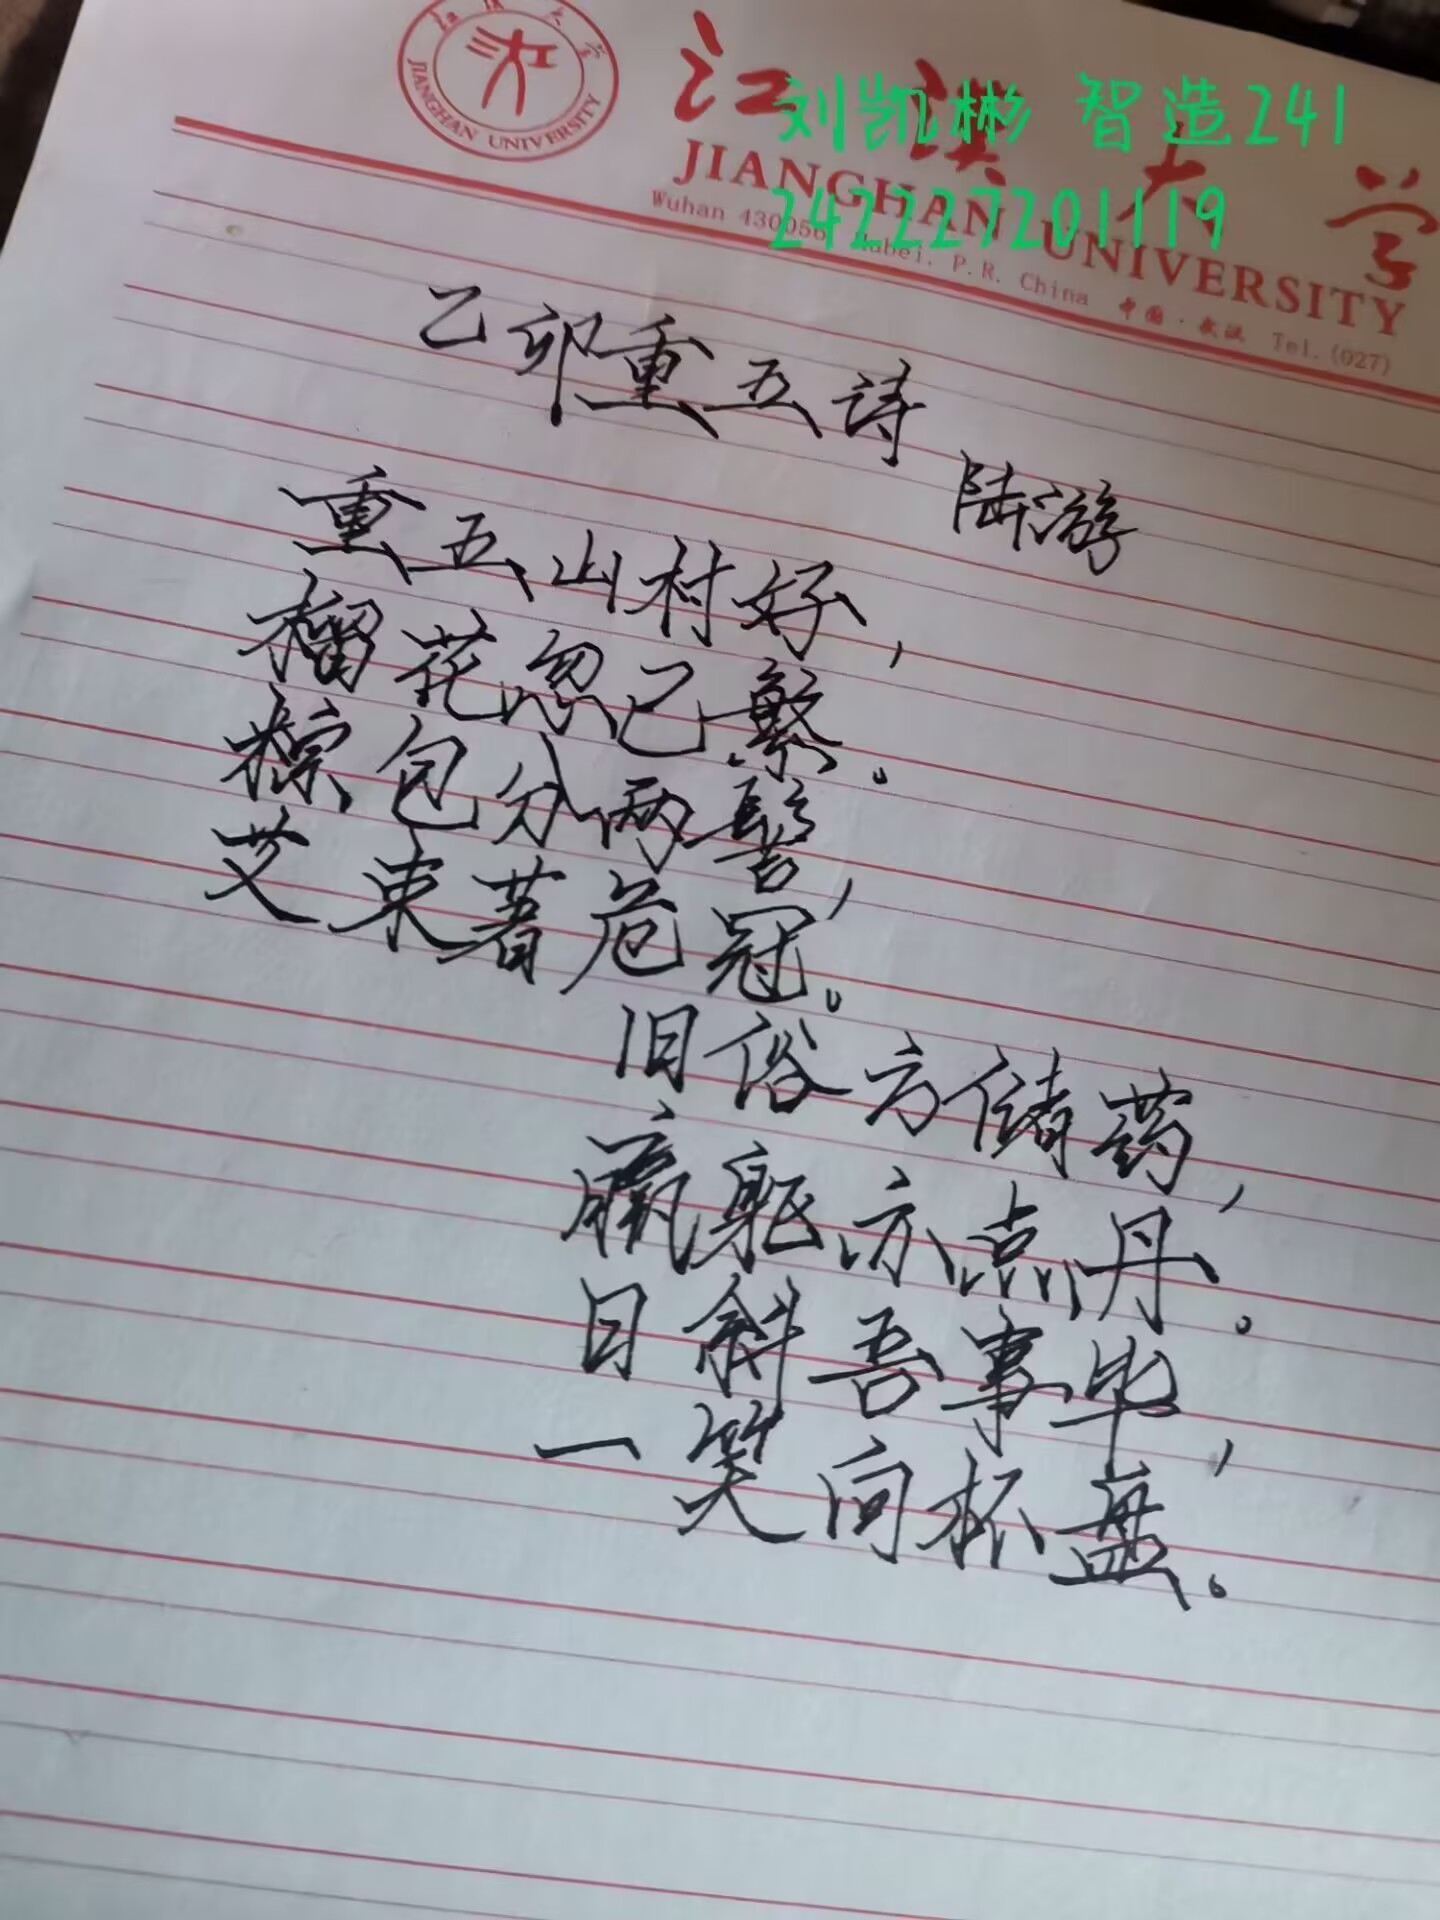 江汉大学
JIANGHAN UNIVERSITY
江汉大学
JIANGHAN UNIVERSITY
Wuhan 430056, Hubei. P.R. China 中国·武汉 Tel.(027)
刘凯彬 智造241
242227201119
乙卯重五诗
陆游
重五山村好，
榴花忽已繁。
粽包分两髻，
艾束著危冠。
旧俗方储药，
羸躯亦点丹。
日斜吾事毕，
一笑向杯盘。